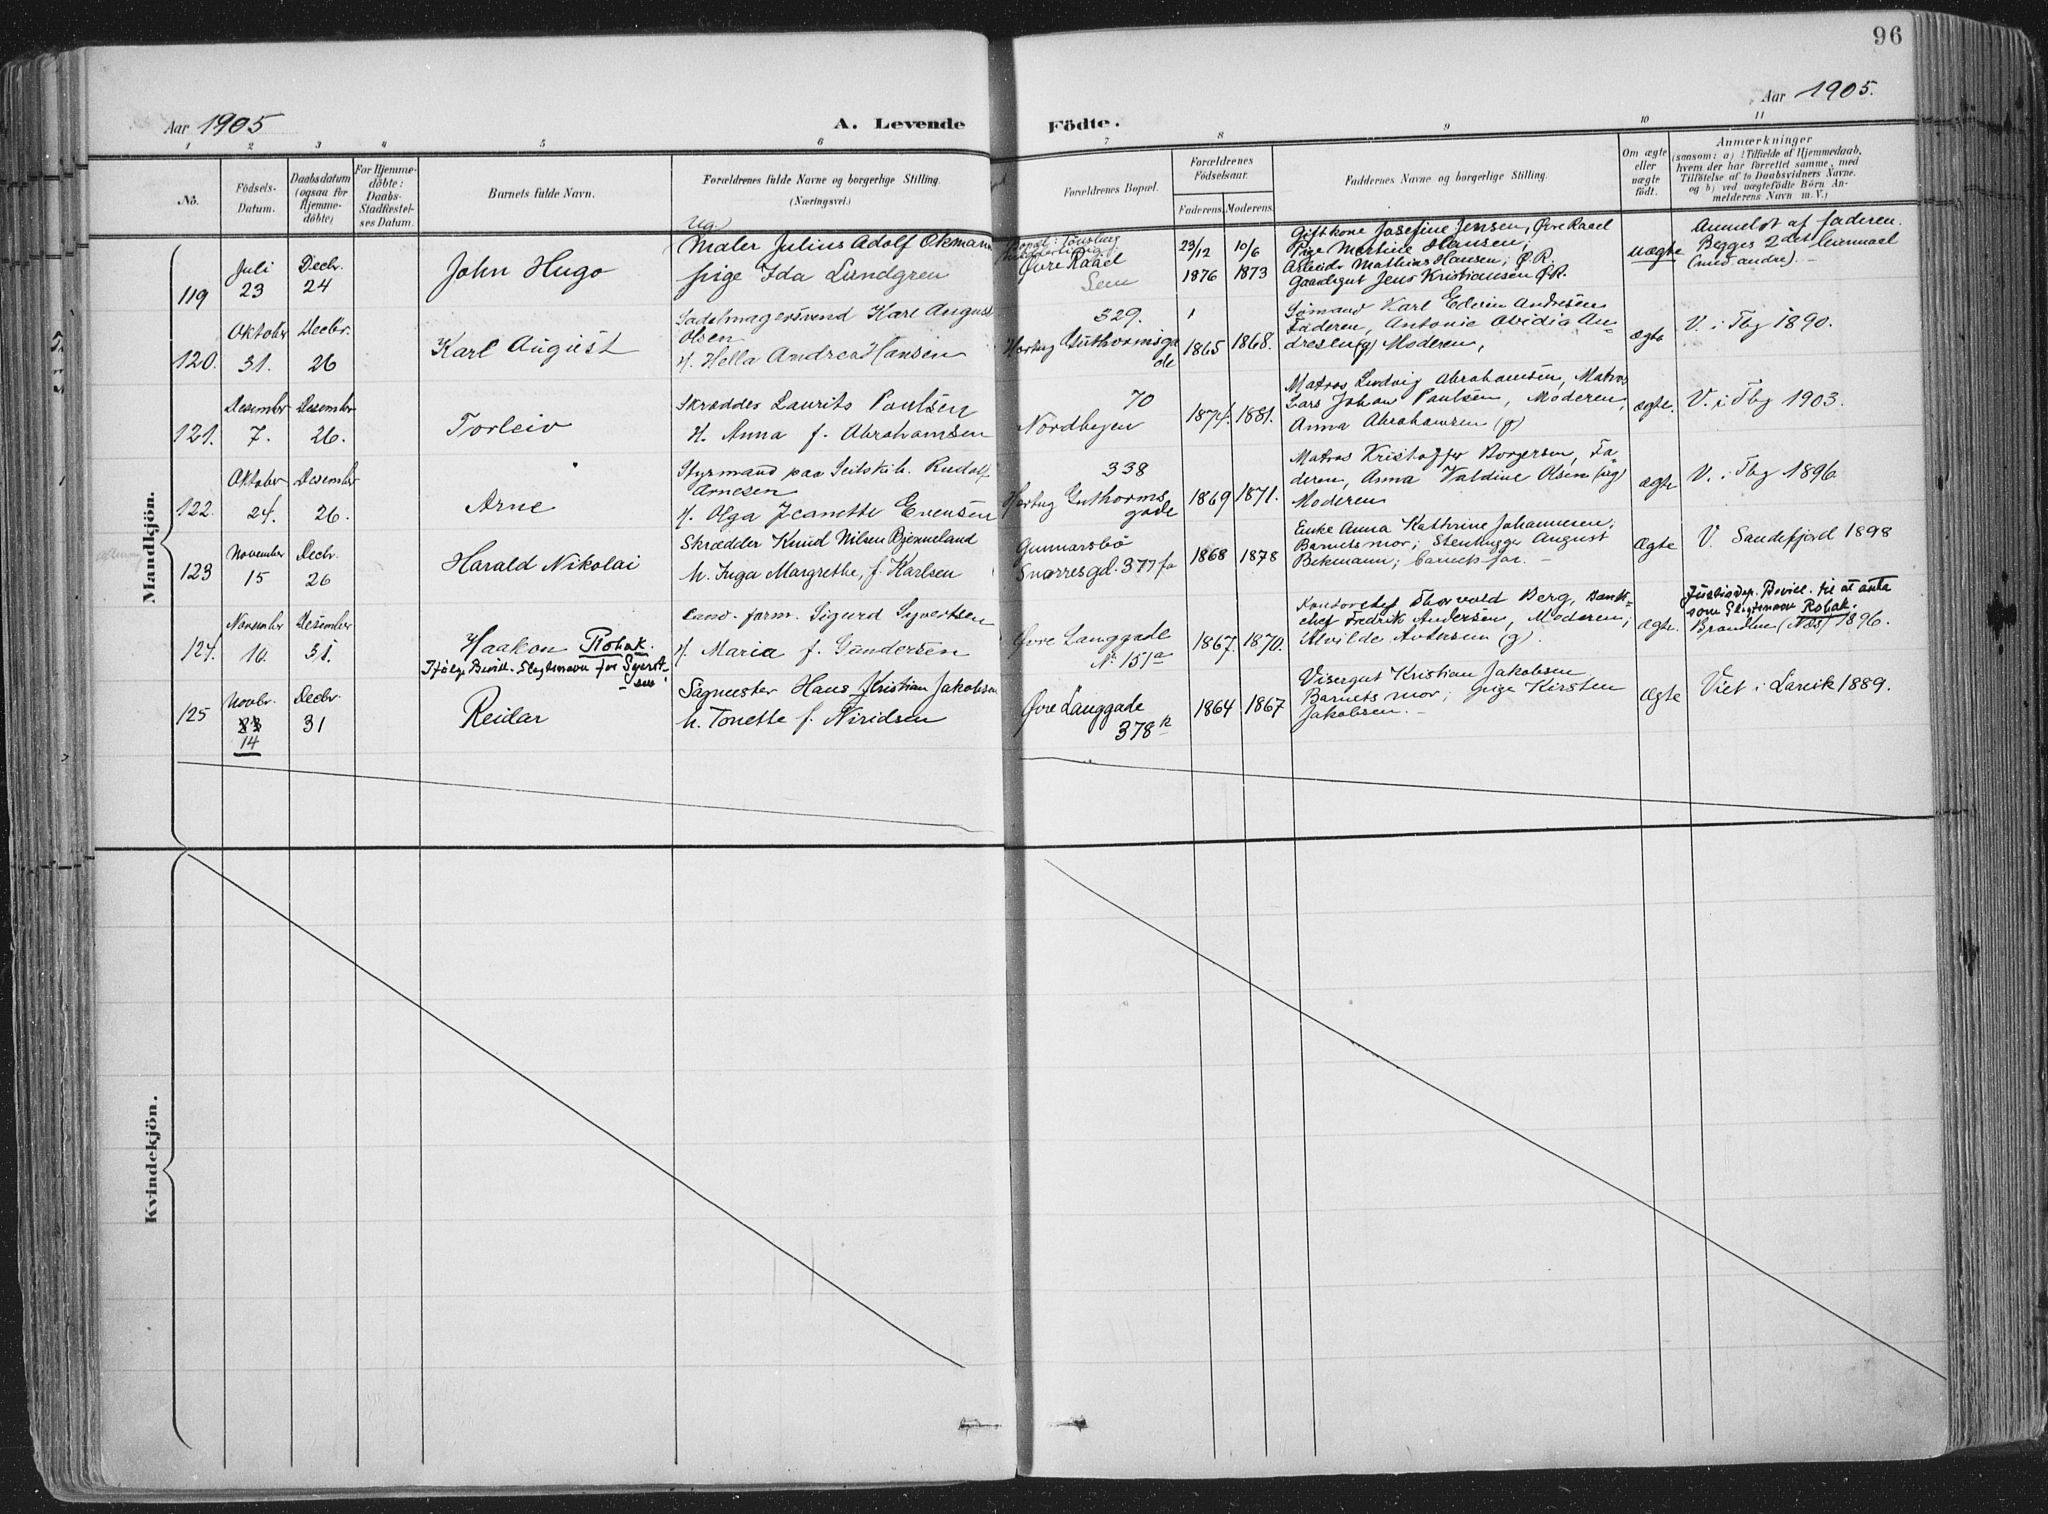 96
Aar 1905
A. Levende
Födte.
Aar 1905.
1 2 3 4 5 6 7 8 9 10 11
No.
Födsels-Datum.
Daabsdatum (ogsaa for Hjemme-döbte)
For Hjemme-döbte: Daabs-Stadfæstel-ses Datum.
Barnets fulde Navn.
Forældrenes fulde Navne og borgerlige Stilling.
(Næringsvei.)
Forældrenes Bopæl.
Forældrenes Födselsaar.
Faderens. Moderens.
Faddernes Navne og borgerlige Stilling.
Om ægte eller uægte födt.
Anmærkninger
(saasom: a) i Tilfælde af Hjemmedaab,
hvem der har forrettet samme, med
Tilföielse af to Daabsvidners Navne.
og b) ved uægtefödte Börn An-
melderens Navn m. V.)
Mandkjön.
119
Juli 23
Decbr. 24
John Hugo
Ug.
Maler Julius Adolf Okmann
pige Ida Lundgren
Bopæl: Tönsberg
Övre Raael
Sem
23/12 1876
10/6 1873
Gift kone Josefine Jensen, Övre Raael
Pige Martine Hansen;
Arbeider Mathias Hansen; Ö. R.
Gaardgut Jens Kristiansen Ö.R.
uægte
Anmeldt af faderen.
Begges 2det leiermaal
(med andre).
120.
Oktober 31.
Decbr. 26
Karl August
Sadelmagersvend Karl August
Olsen
H. Hella Andrea Hansen
329.
Hertug Guthormsga
de
1865
1868.
Sømand Karl Edvin Andresen
Faderen, Antonie Ovidia An-
dresen (g) Moderen,
ægte
V. i Tbg 1890.
121.
Desember 7.
Desember 26.
Torleiv
Skrædder Laurits Paulsen
H. Anna f. Abrahamsen
70
Nordbyen
1874.
1881.
Matros Ludvig Abrahamsen, Matros
Lars Johan Paulsen, Moderen,
Anna Abrahamsen (g)
ægte.
V. i Tbg 1903.
122.
Oktober 24.
Desember 26.
Arne
Styrmand paa Seilskib. Rudolf
Arnesen
H. Olga Jeanette Evensen
338
Hertug Guthorms
gade
1869
1871.
Matros Kristoffer Borgersen, Fa-
deren, Anna Valdine Olsen (ug)
Moderen
ægte
V. i Tbg 1896.
123
November 15
Decbr. 26
Harald Nikolai
Skrædder Knud Nilsen Bjenneland
h. Inga Margrethe, f. Karlsen
Gunnarsbö
Snorresgd. 377 fa
1868
1878
Enke Anna Kathrine Johannesen,
Barnets mor; Stenhugger August
Bekmann; barnets far.
Ægte
V. Sandefjord 1898
124.
November 16.
Desember 31.
Haakon Robak.
Ifölge Bevill. Slegtsnavn for Syvert-
sen.
cand. farm. Sigurd Syvertsen
H. Maria f. Gundersen
Övre Langgade
No 151a
1867.
1870.
Kontorchef Thorvald Berg, Bank-
chef Fredrik Andersen, Moderen;
Alvilde Andersen (g).
ægte.
Justisdep. Bevill. til at anta
som Slegtsnavn Robak.
Brandbu (Næs) 1896.
125
Novbr. 14
Decbr. 31
Reidar
Sagmester Hans Kristian Jakobsen
h. Tonette f. Niridsen
Övre Langgade
378 k
1864
1867
Visergut Kristian Jakobsen
Barnets mor; pige Kirsten
Jakobsen.
Ægte
Viet i Larvik 1889.
Kvindekjön.